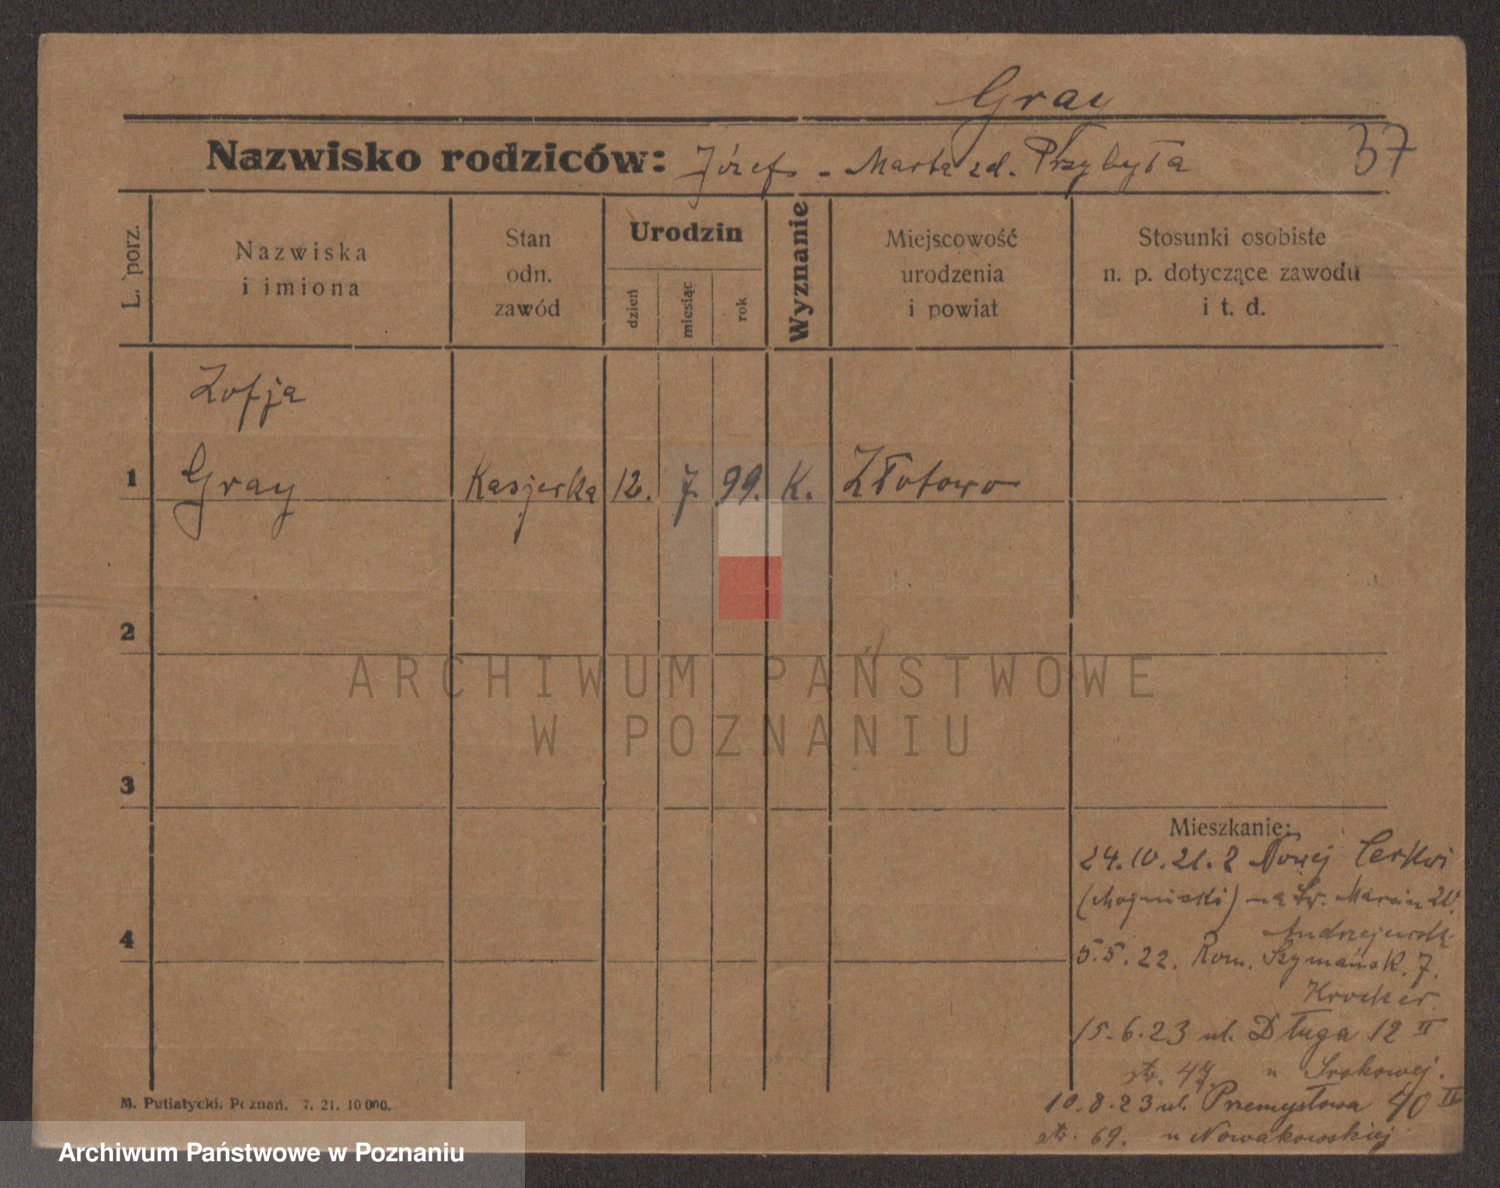 Gray
Nazwisko rodziców: Józef - Marta zd. Przybyła
37
L. porz.
Nazwiska
i imiona
Stan
odn.
zawód
Urodzin
dzień
miesiąc
rok
Wyznanie
Miejscowość
urodzenia
i powiat
Stosunki osobiste
n. p. dotyczące zawodu
i t. d.
Zofja
1 Gray Kasjerka 12. 7. 99. K. Złotowo
2
ARCHIWUM PAŃSTWOWE
W POZNANIU
3
Mieszkanie:
24.10.21. z Nowej Cerkwi
na Św. Marcin
4
5.5.22. Rom. Szymańsk. 7.
15.6.23 ul. Długa 12 II
str. 47. u Srokowej.
10.8.23 ul. Przemysłowa 40
str. 69. u Nowakowskiej
M. Putiatycki, Poznań. 7. 21. 10 000.
Archiwum Państwowe w Poznaniu